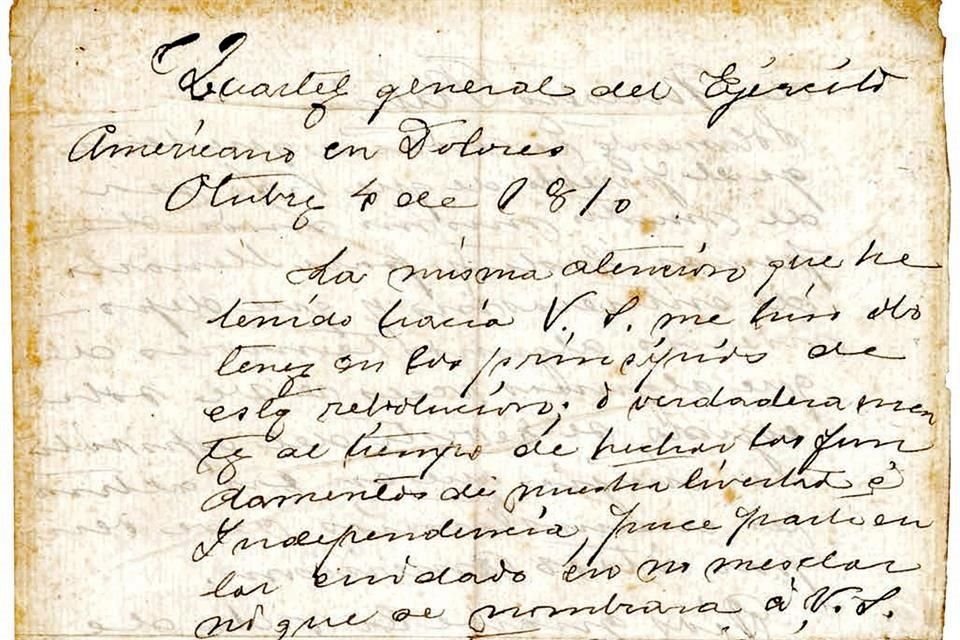 Quartel general del Ejército
Américano en Dolores
Otubre 4 de 1810
La misma atención que he
tenído hacía V. S. me híso
tener en los príncípíos de
esta revolucíon; ó verdaderamen
te al tíempo de hechar los fun
damentos de nuestra livertad é
Independencía, puce partícu
lar cuidado en no mesclar
ni que se nombrara á V. S.